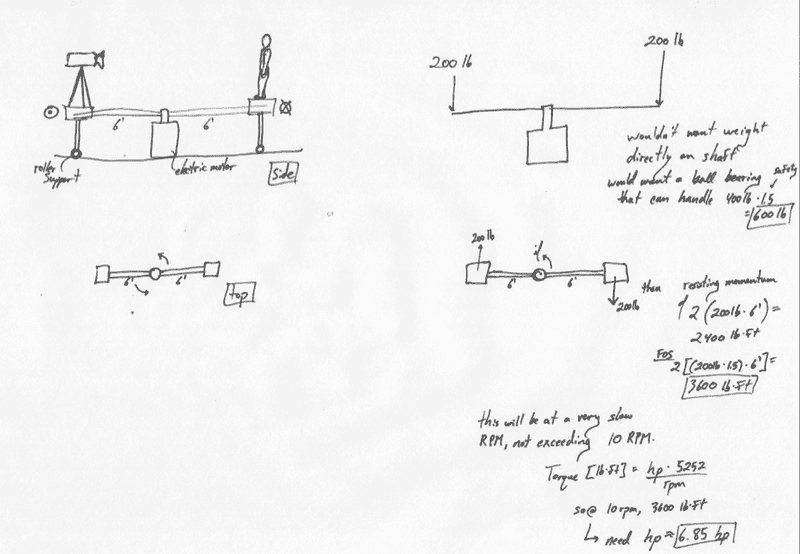 6'
6'
roller
support
electric motor
Side
200 lb
200 lb
wouldn't want weight
directly on shaft
would want a ball bearing safety
that can handle 400lb · 1.5
= 600 lb
6'
6'
top
200 lb
if
6'
6'
200lb
then resisting momentum
2 (200lb · 6') =
2400 lb·ft
FOS
2 [(200lb · 1.5) · 6'] =
3600 lb·ft
this will be at a very slow
RPM, not exceeding 10 RPM.
Torque [lb·ft] = hp · 5252
rpm
so @ 10 rpm, 3600 lb·ft
↳ need hp ≈ 6.85 hp